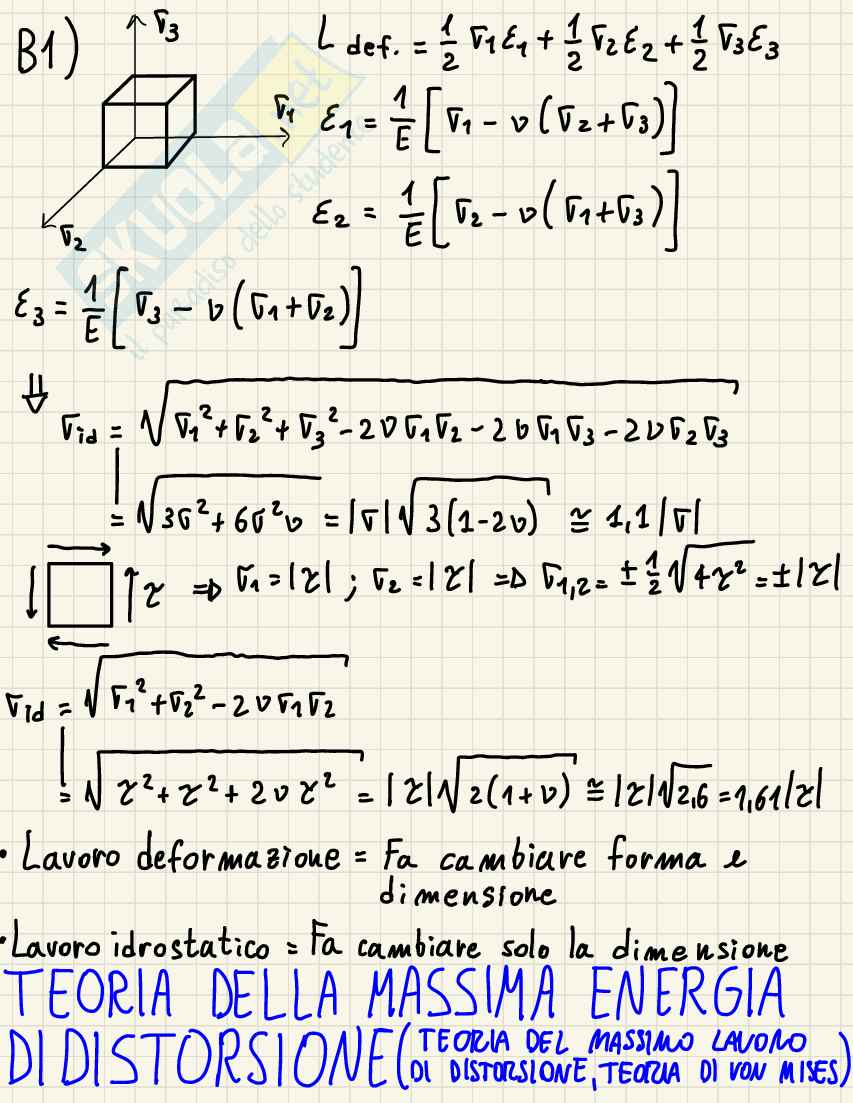 B1) σ3 L def. = 1/2 σ1 ε1 + 1/2 σ2 ε2 + 1/2 σ3 ε3
σ1 ε1 = 1/E [σ1 - ν(σ2+σ3)]
σ2 ε2 = 1/E [σ2 - ν(σ1+σ3)]
ε3 = 1/E [σ3 - ν(σ1+σ2)]
SKUOLA.net
il paradiso dello studente
⇓
σid = √(σ1² + σ2² + σ3² - 2νσ1σ2 - 2νσ1σ3 - 2νσ2σ3)
= √(3σ² + 6σ²ν) = |σ|√(3(1-2ν)) ≅ 1,1|σ|
τ ⇒ σ1 = |τ| ; σ2 = |τ| ⇒ σ1,2 = ± 1/2 √(4τ²) = ±|τ|
σid = √(σ1² + σ2² - 2νσ1σ2)
= √(τ² + τ² + 2ντ²) = |τ|√(2(1+ν)) ≅ |τ|√2,6 = 1,61|τ|
• Lavoro deformazione = Fa cambiare forma e
dimensione
• Lavoro idrostatico = Fa cambiare solo la dimensione
TEORIA DELLA MASSIMA ENERGIA
DI DISTORSIONE (TEORIA DEL MASSIMO LAVORO
DI DISTORSIONE, TEORIA DI VON MISES)